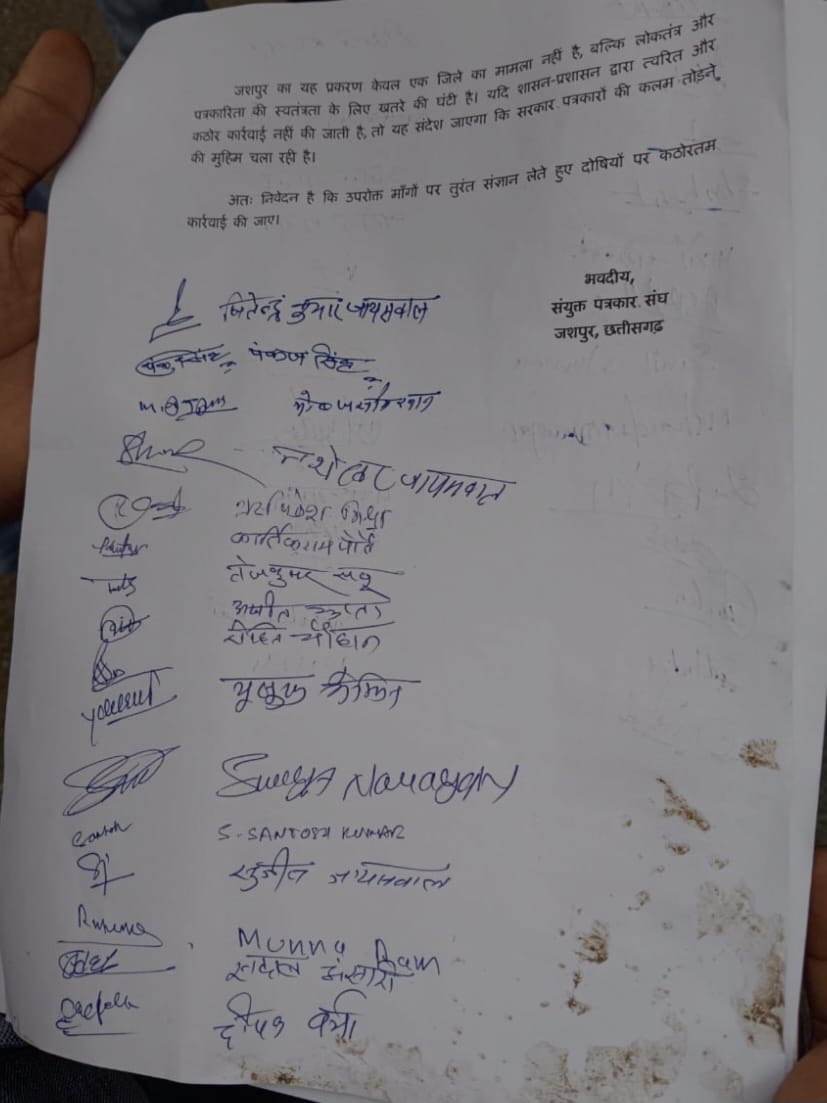 जशपुर का यह प्रकरण केवल एक जिले का मामला नहीं है, बल्कि लोकतंत्र और
पत्रकारिता की स्वतंत्रता के लिए खतरे की घंटी है। यदि शासन-प्रशासन द्वारा त्वरित और
कठोर कार्रवाई नहीं की जाती है, तो यह संदेश जाएगा कि सरकार पत्रकारों की कलम तोड़ने
की मुहिम चला रही है।
अतः निवेदन है कि उपरोक्त माँगों पर तुरंत संज्ञान लेते हुए दोषियों पर कठोरतम
कार्रवाई की जाए।
भवदीय,
संयुक्त पत्रकार संघ
जशपुर, छत्तीसगढ़
जितेन्द्र कुमार जायसवाल
पंकज सिंह
जायसवाल
मिश्रा
कार्तिकराम पोर्ते
तेजकुमार साहू
अजीत गुप्ता
रोहित चौहान
Surya Narayan
Santosh S. SANTOSH KUMAR
जायसवाल
Munna Ram
अंसारी
Deepak दीपक वर्मा